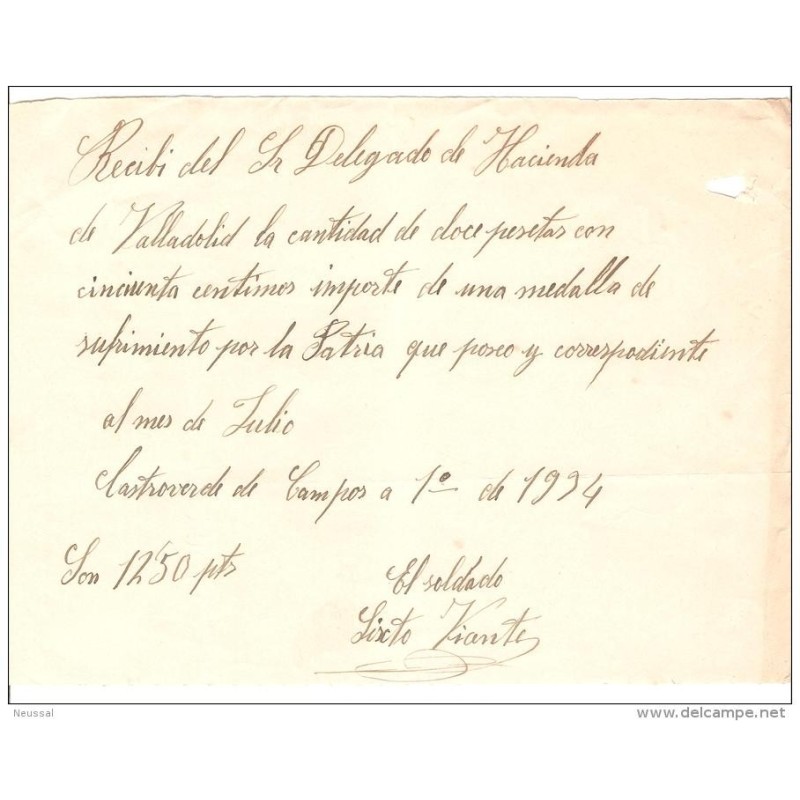 Recibi del Sr Delegado de Hacienda
de Valladolid la cantidad de doce pesetas con
cincuenta centimos importe de una medalla de
sufrimiento por la Patria que poseo y correspodiente
al mes de Julio
Castroverde de Campos a 1º de 1934
Son 12'50 pts
El soldado
Sixto Viante
Neussal
www.delcampe.net